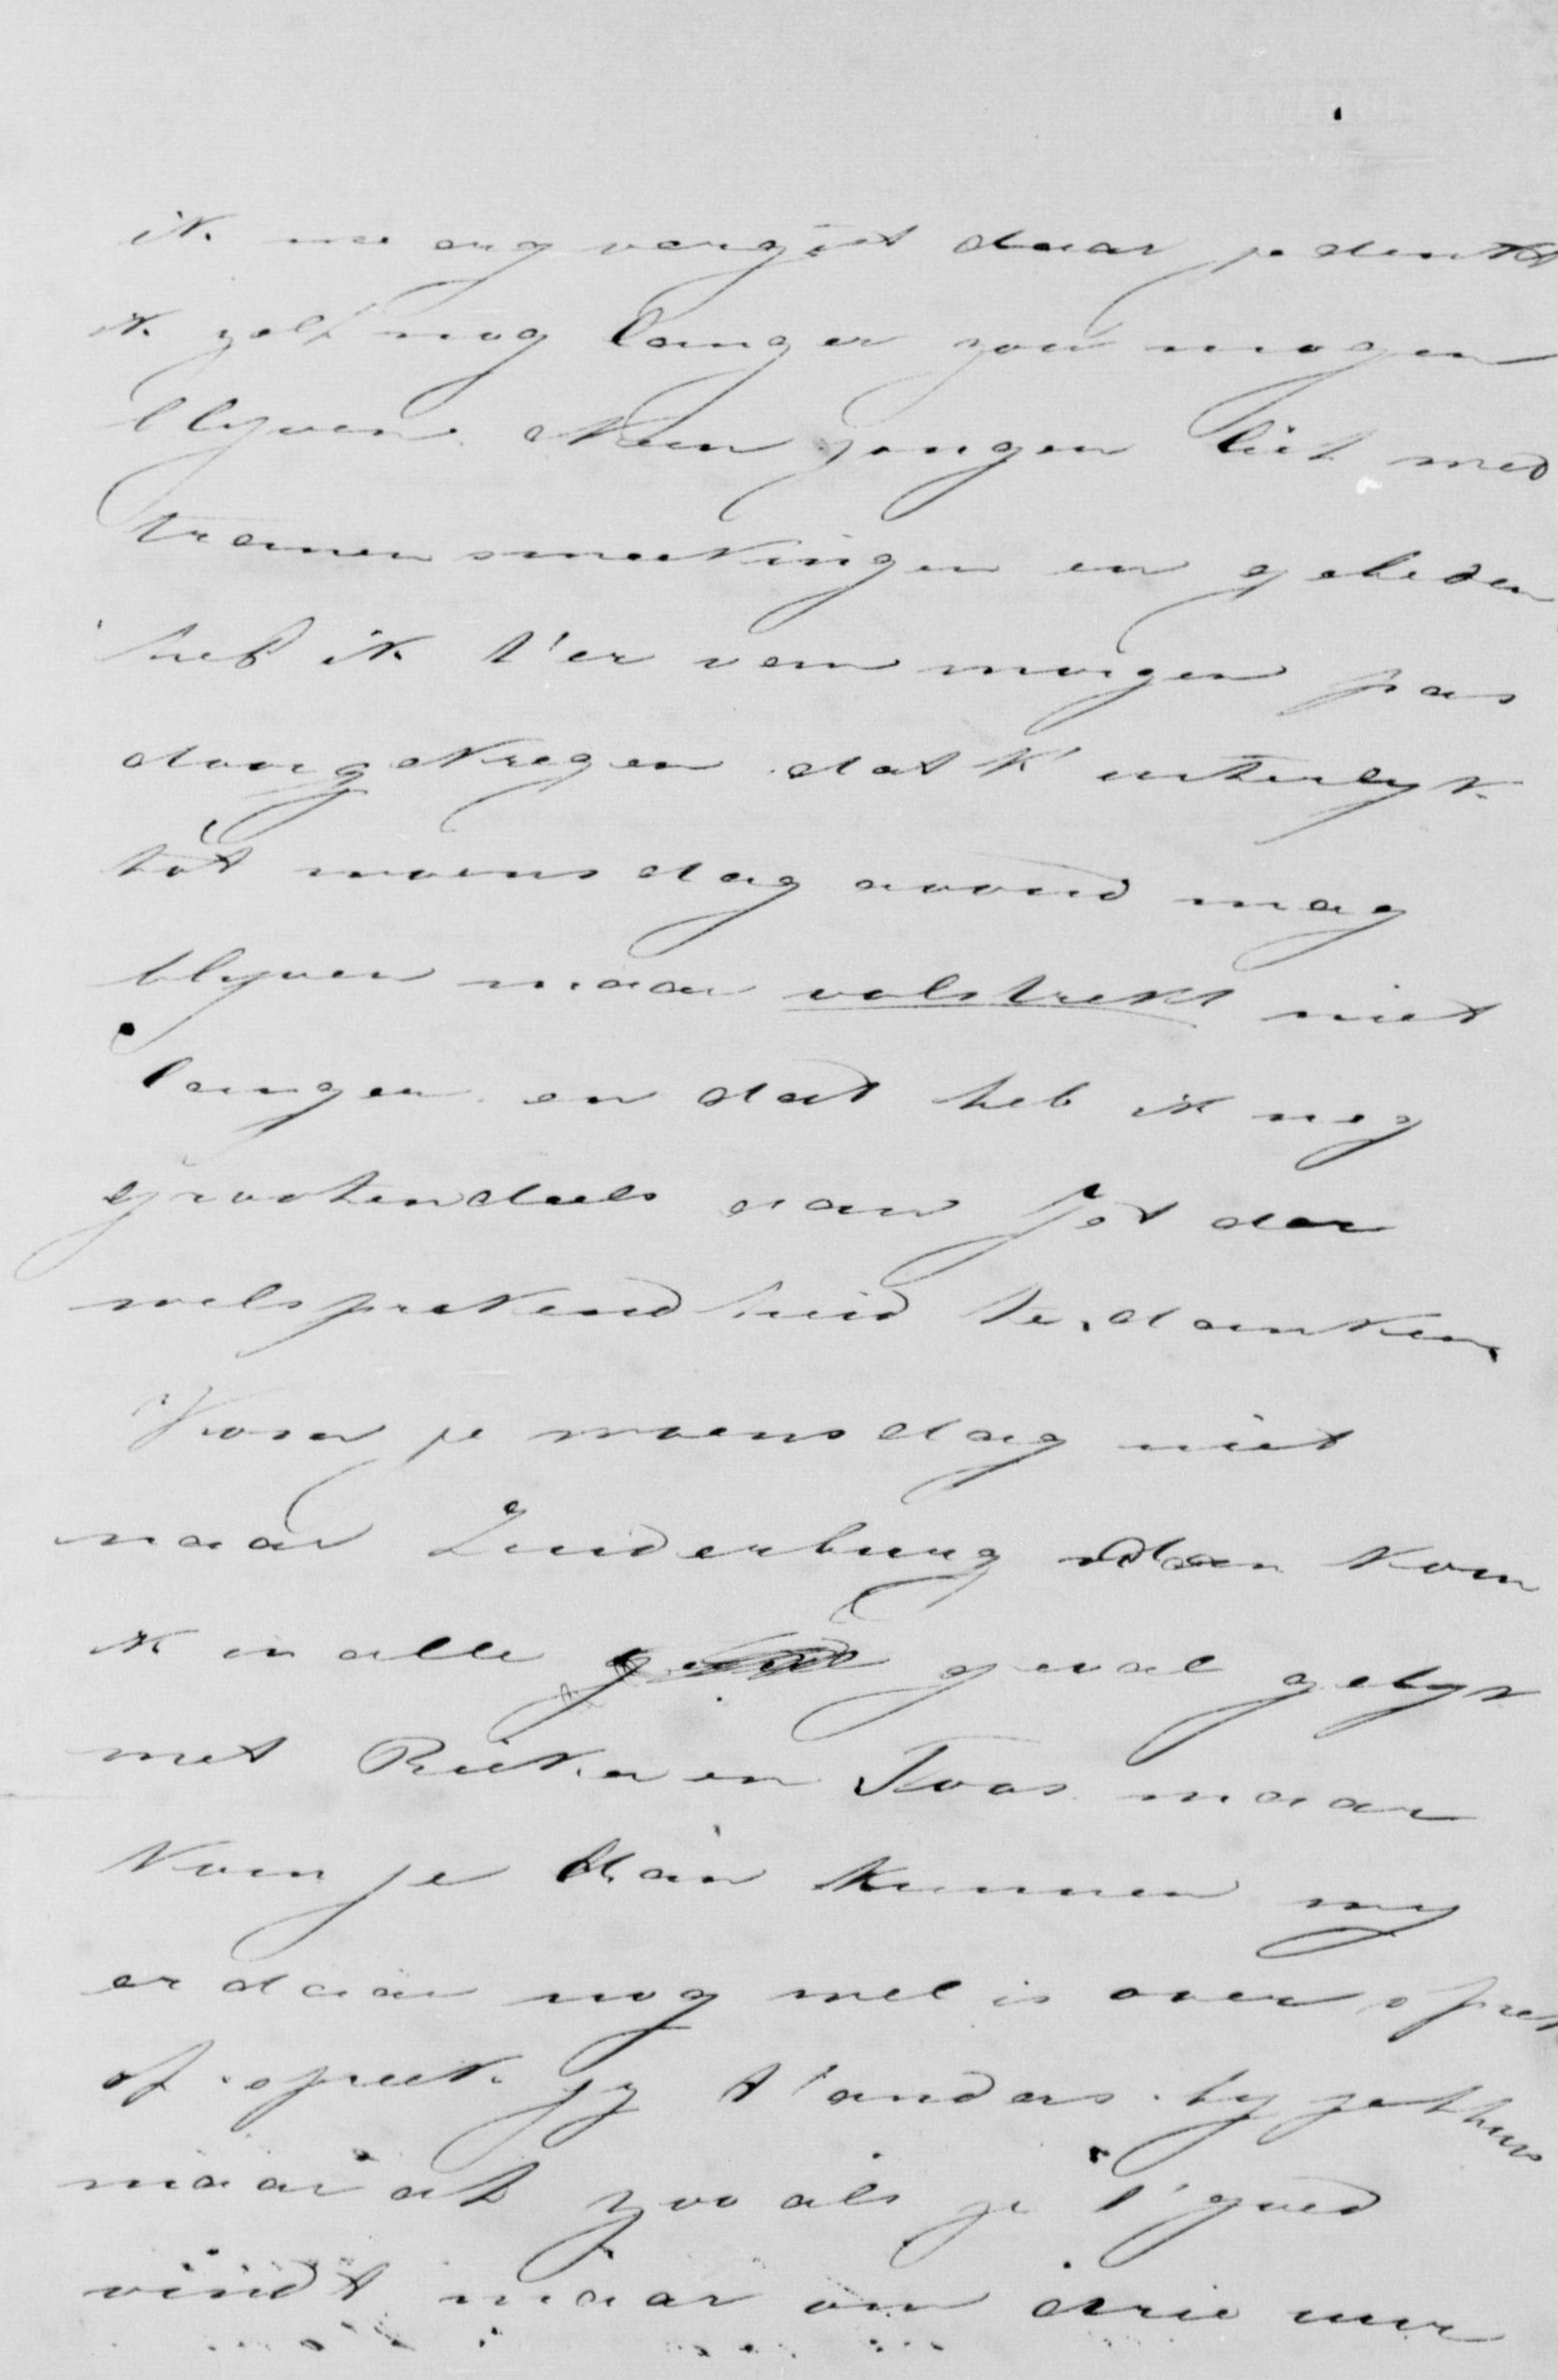 ik me erg vergist daar je denkt
ik zelf nog langer zou mogen
blyven. Neen jongen lief met
tranen smeekingen en gebeden
heb ik t'er van morgen pas
doorgekregen dat k' uiterlyk
tot woensdag avond mag
blyven maar volstrekt niet
langer en dat heb ik nog
grootendeels aan Jet der
welsprekendheid te danken
Kom je woensdag niet
naar Zuiderburg dan kom
ik in alle geval gelyk
met Rieka en Koos maar
kom je dan kunnen wy
er daar nog wel is over sprek
of spreek jy t'anders by jet huis
maar af zoo als je t' goed
vindt maar om drie uur